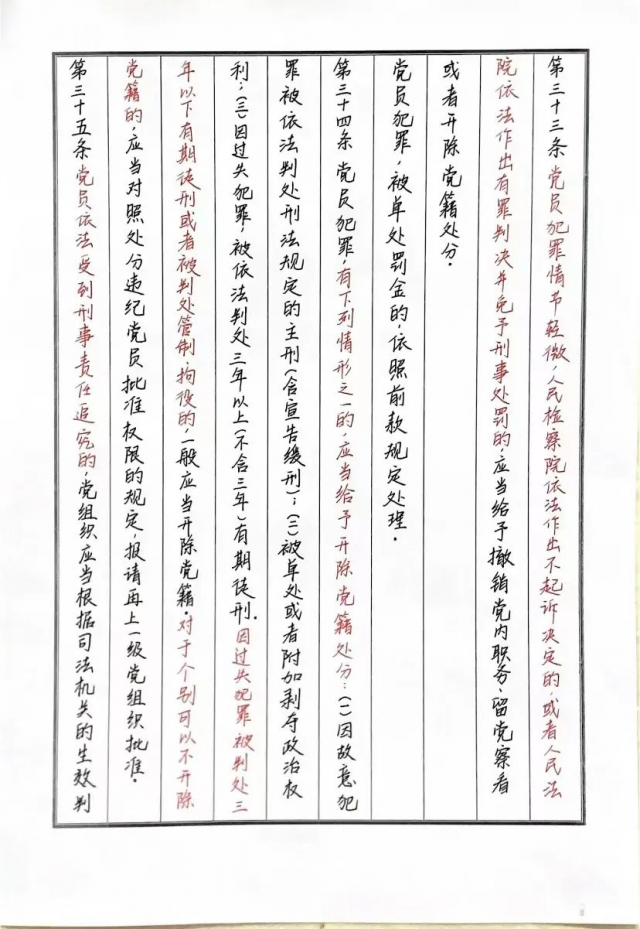 第三十三条党员犯罪情节轻微，人民检察院依法作出不起诉决定的，或者人民法
院依法作出有罪判决并免予刑事处罚的，应当给予撤销党内职务、留党察看
或者开除党籍处分。
党员犯罪，被单处罚金的，依照前款规定处理。
第三十四条党员犯罪，有下列情形之一的，应当给予开除党籍处分：(一)因故意犯
罪被依法判处刑法规定的主刑(含宣告缓刑)；(二)被单处或者附加剥夺政治权
利；(三)因过失犯罪，被依法判处三年以上(不含三年)有期徒刑。因过失犯罪被判处三
年以下有期徒刑或者被判处管制、拘役的，一般应当开除党籍。对于个别可以不开除
党籍的，应当对照处分违纪党员批准权限的规定，报请再上一级党组织批准。
第三十五条党员依法受到刑事责任追究的，党组织应当根据司法机关的生效判